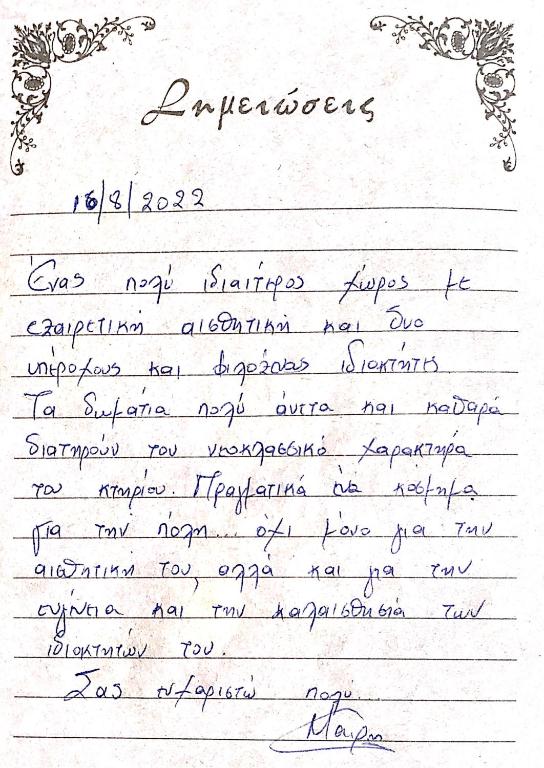 Σημειώσεις
16/8/2022
Ένας πολύ ιδιαίτερος χώρος με
εξαιρετική αισθητική και δυο
υπέροχους και φιλόξενους ιδιοκτήτες.
Τα δωμάτια πολύ άνετα και καθαρά
διατηρούν τον νεοκλασσικό χαρακτήρα
του κτηρίου. Πραγματικά ένα κόσμημα
για την πόλη... όχι μόνο για την
αισθητική του, αλλά και για την
ευγένεια και την καλαισθησία των
ιδιοκτητών του.
Σας ευχαριστώ πολύ
Μαίρη